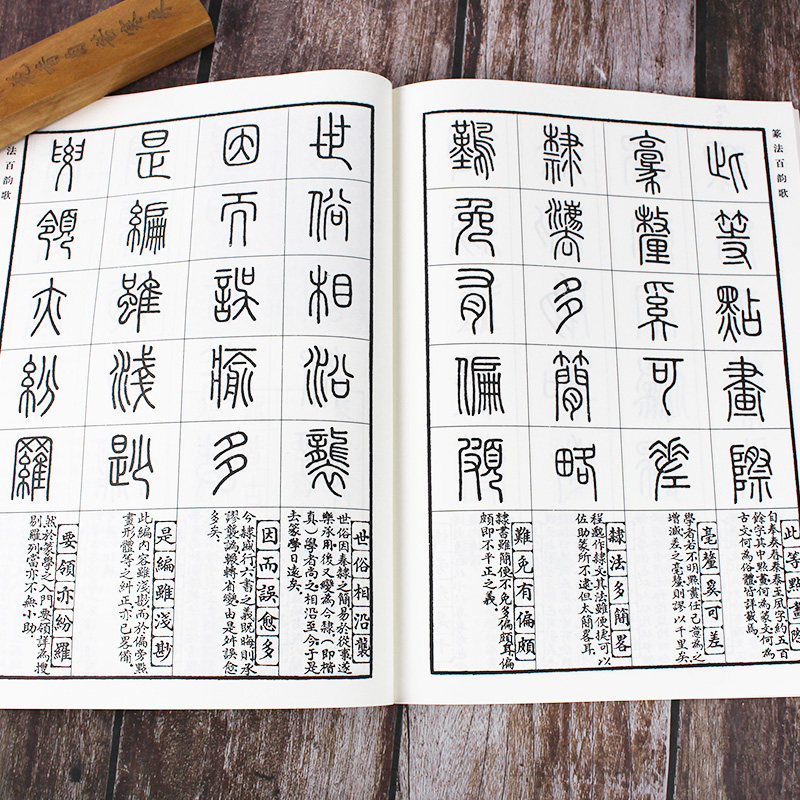 篆法百韵歌
此等點畫際
豪釐奚可差
隸法多簡略
難免有偏頗
此等點畫際
毫釐奚可差
學者若不明點畫任己意為之
增減差之毫釐則謬以千里矣
隸法多簡畧
程邈作隸文其法雖便捷可以
佐助篆所不逮但太簡畧耳
難免有偏頗
隸書雖簡便不免多偏頗耳偏
頗即不平正之義
世俗相沿襲
因而誤愈多
是編雖淺尟
要領亦紛羅
世俗相沿襲
世俗因秦隸之簡易於從事遂
樂承用後又變為今隸即楷
真學者尚之相沿至今於是
去篆學日遠矣
因而誤愈多
今隸盛行六書之義既晦則承
謬襲譌輾轉省變由是沿誤愈
多矣
是編雖淺尟
此編內容雖淺尟而於偏旁點
畫形體等之糾正亦已畧備
要領亦紛羅
然於篆學之入門要領詳為搜
剔羅列當亦不無小助
法百韵歌